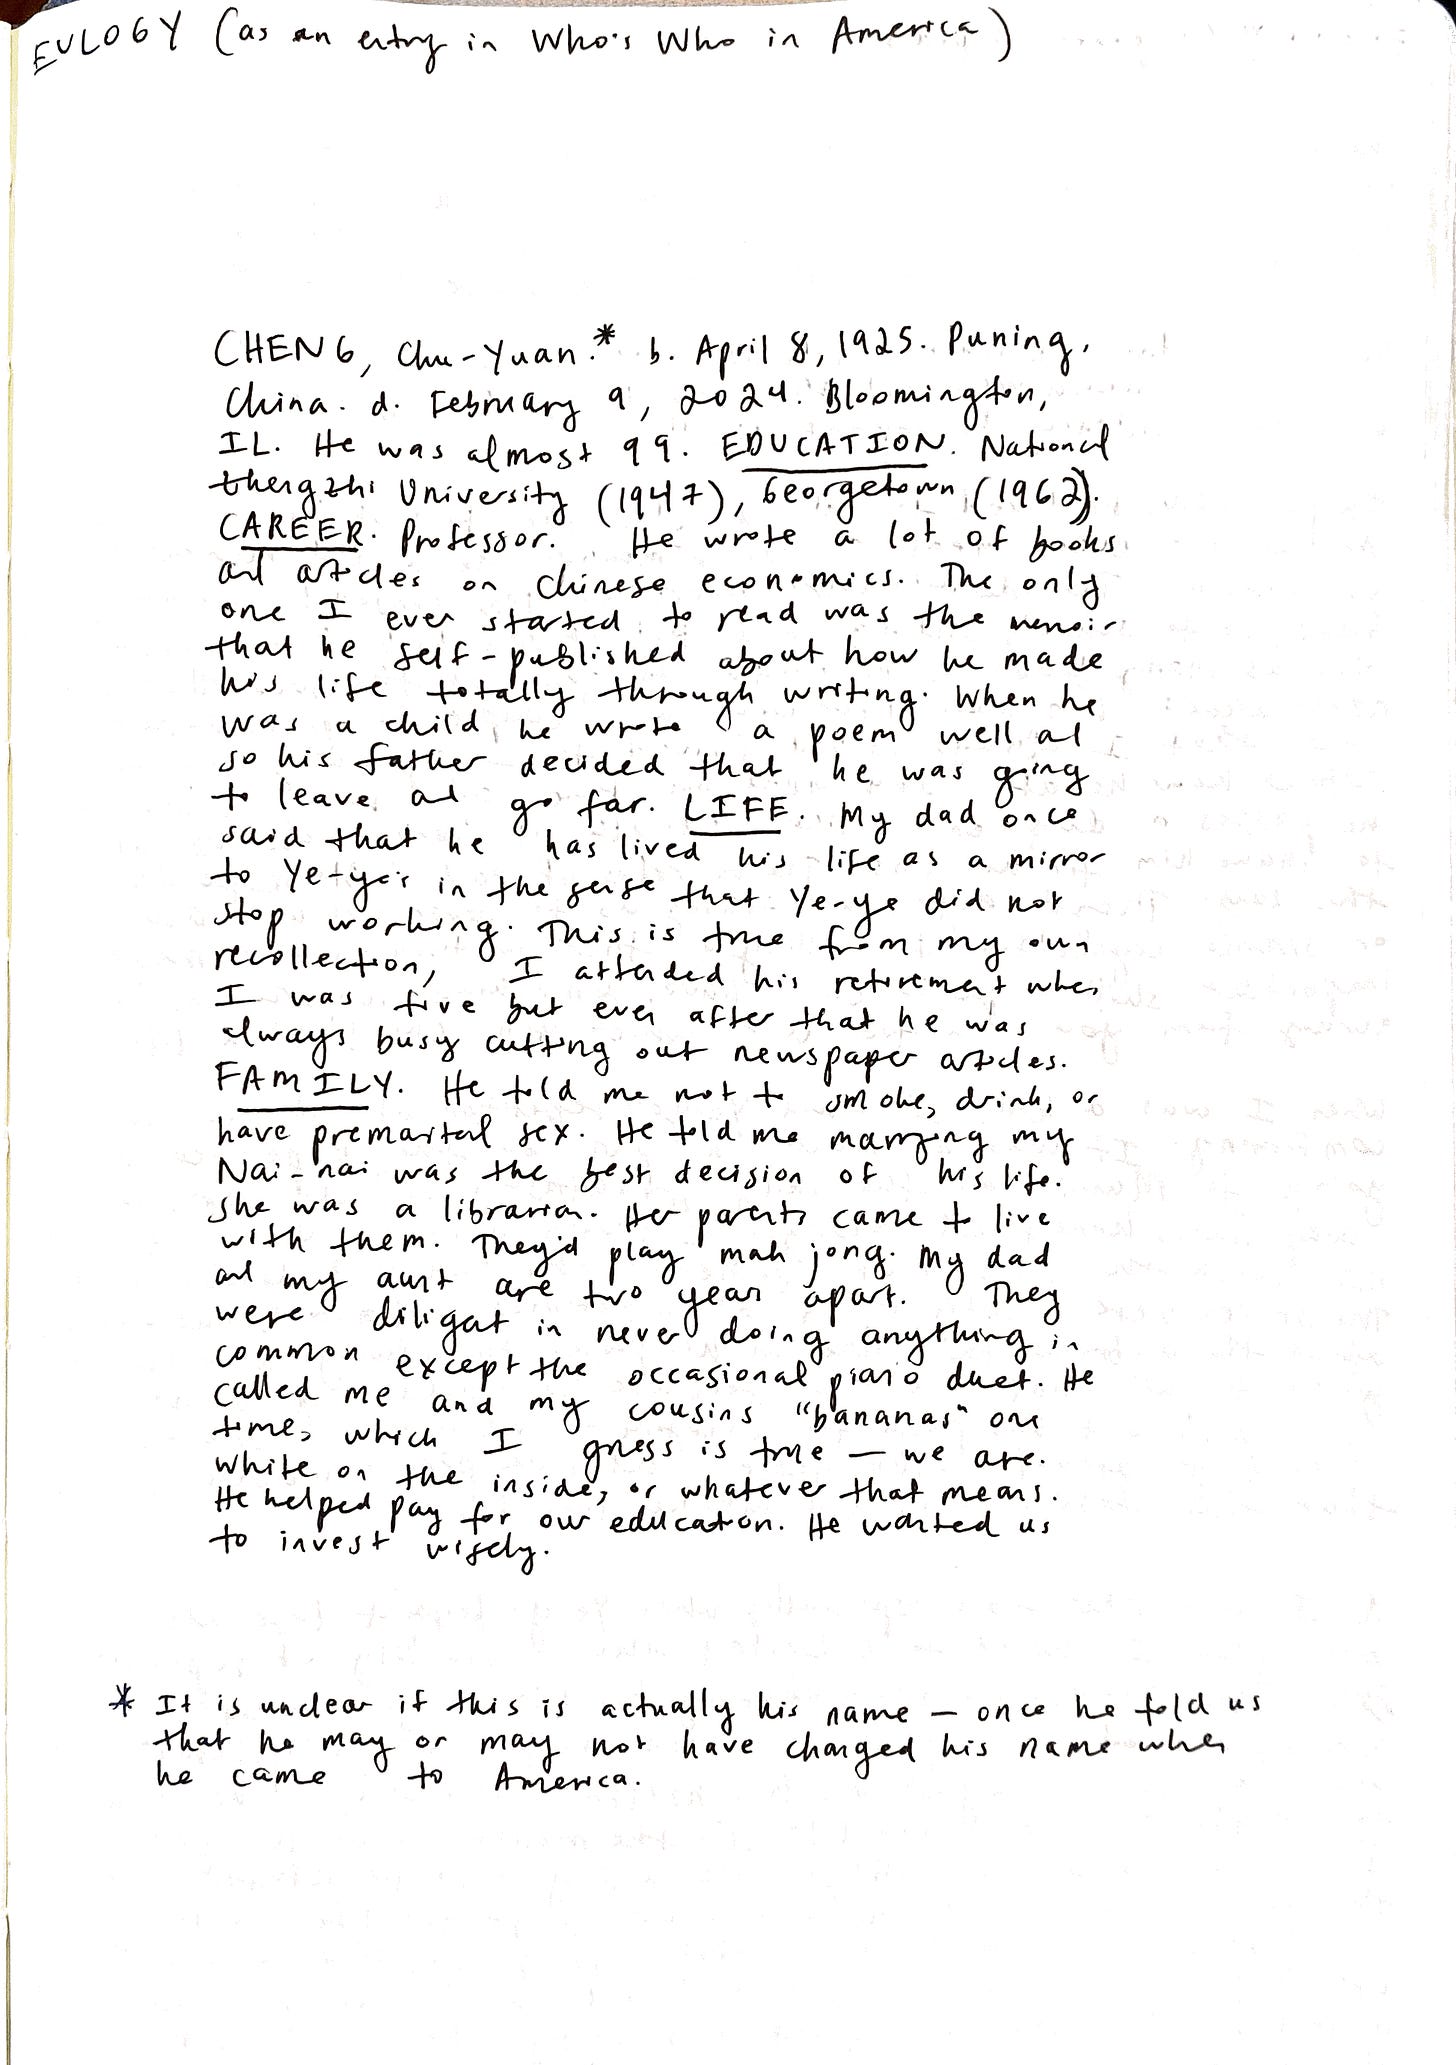 EULOGY (as an entry in Who's Who in America)
CHENG, Chu-Yuan.* b. April 8, 1925. Puning,
China. d. February 9, 2024. Bloomington,
IL. He was almost 99. EDUCATION. National
Zhengzhi University (1947), Georgetown (1962).
CAREER. Professor. He wrote a lot of books
and articles on Chinese economics. The only
one I ever started to read was the memoir
that he self-published about how he made
his life totally through writing. When he
was a child, he wrote a poem well and
so his father decided that he was going
to leave and go far. LIFE. My dad once
said that he has lived his life as a mirror
to Ye-ye's in the sense that Ye-ye did not
stop working. This is true from my own
recollection, I attended his retirement when
I was five but even after that he was
always busy cutting out newspaper articles.
FAMILY. He told me not to smoke, drink, or
have premarital sex. He told me marrying my
Nai-nai was the best decision of his life.
She was a librarian. Her parents came to live
with them. They'd play mah jong. My dad
and my aunt are two years apart. They
were diligent in never doing anything in
common except the occasional piano duet. He
called me and my cousins "bananas" one
time, which I guess is true — we are.
White on the inside, or whatever that means.
He helped pay for our education. He wanted us
to invest wisely.
* It is unclear if this is actually his name — once he told us
that he may or may not have changed his name when
he came to America.